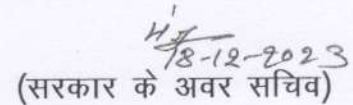 18-12-2023
(सरकार के अवर सचिव)